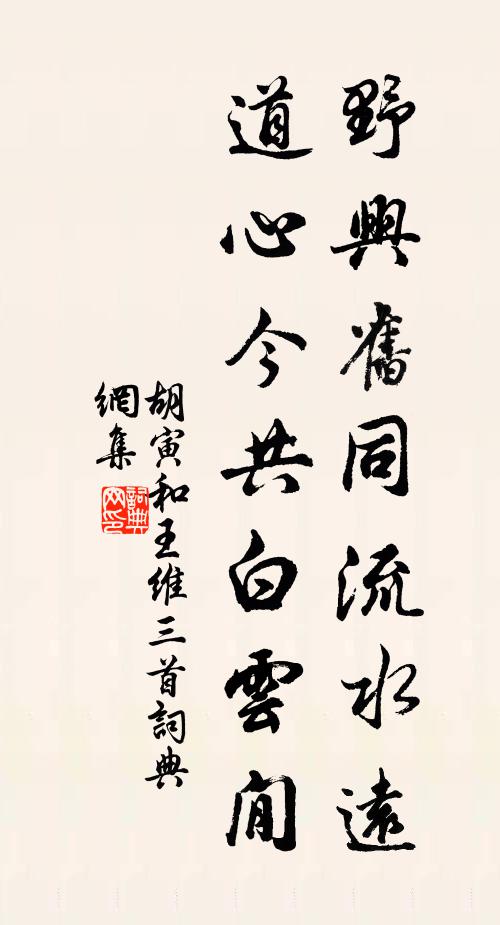 野興舊同流水遠
道心今共白雲閒
胡寅和王維三首詞典
網集
詞典
网印